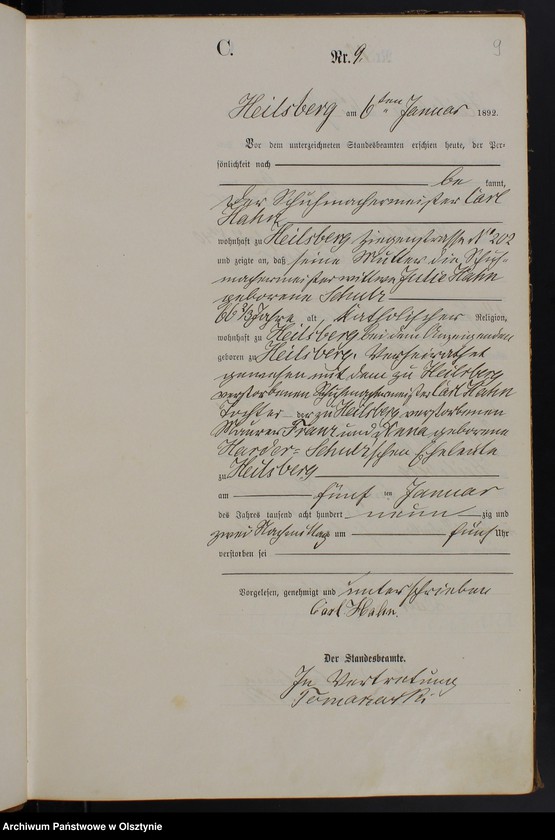 C.
Nr. 9.
9
Heilsberg am 6ten Januar 1892.
Vor dem unterzeichneten Standesbeamten erschien heute, der Per-
sönlichkeit nach
be kannt,
der Schuhmachermeister Carl
Hahn
wohnhaft zu Heilsberg Ziegenstrasse No 202
und zeigte an, daß seine Mutter die Schuh-
machermeisterwittwe Julie Hahn
geborene Schulz
66 Jahre alt, katholischer Religion,
wohnhaft zu Heilsberg bei dem Anzeigenden
geboren zu Heilsberg. Verheirathet
gewesen mit dem zu Heilsberg
verstorbenen Schuhmachermeister Carl Hahn
Tochter der zu Heilsberg verstorbenen
Maurer Franz und geborene
Harder-Schulz'schen Eheleute
zu Heilsberg
am fünf ten Januar
des Jahres tausend acht hundert neun zig und
zwei Nachmittags um fünf Uhr
verstorben sei
Vorgelesen, genehmigt und unterschrieben
Carl Hahn.
Der Standesbeamte.
In Vertretung
Archiwum Państwowe w Olsztynie